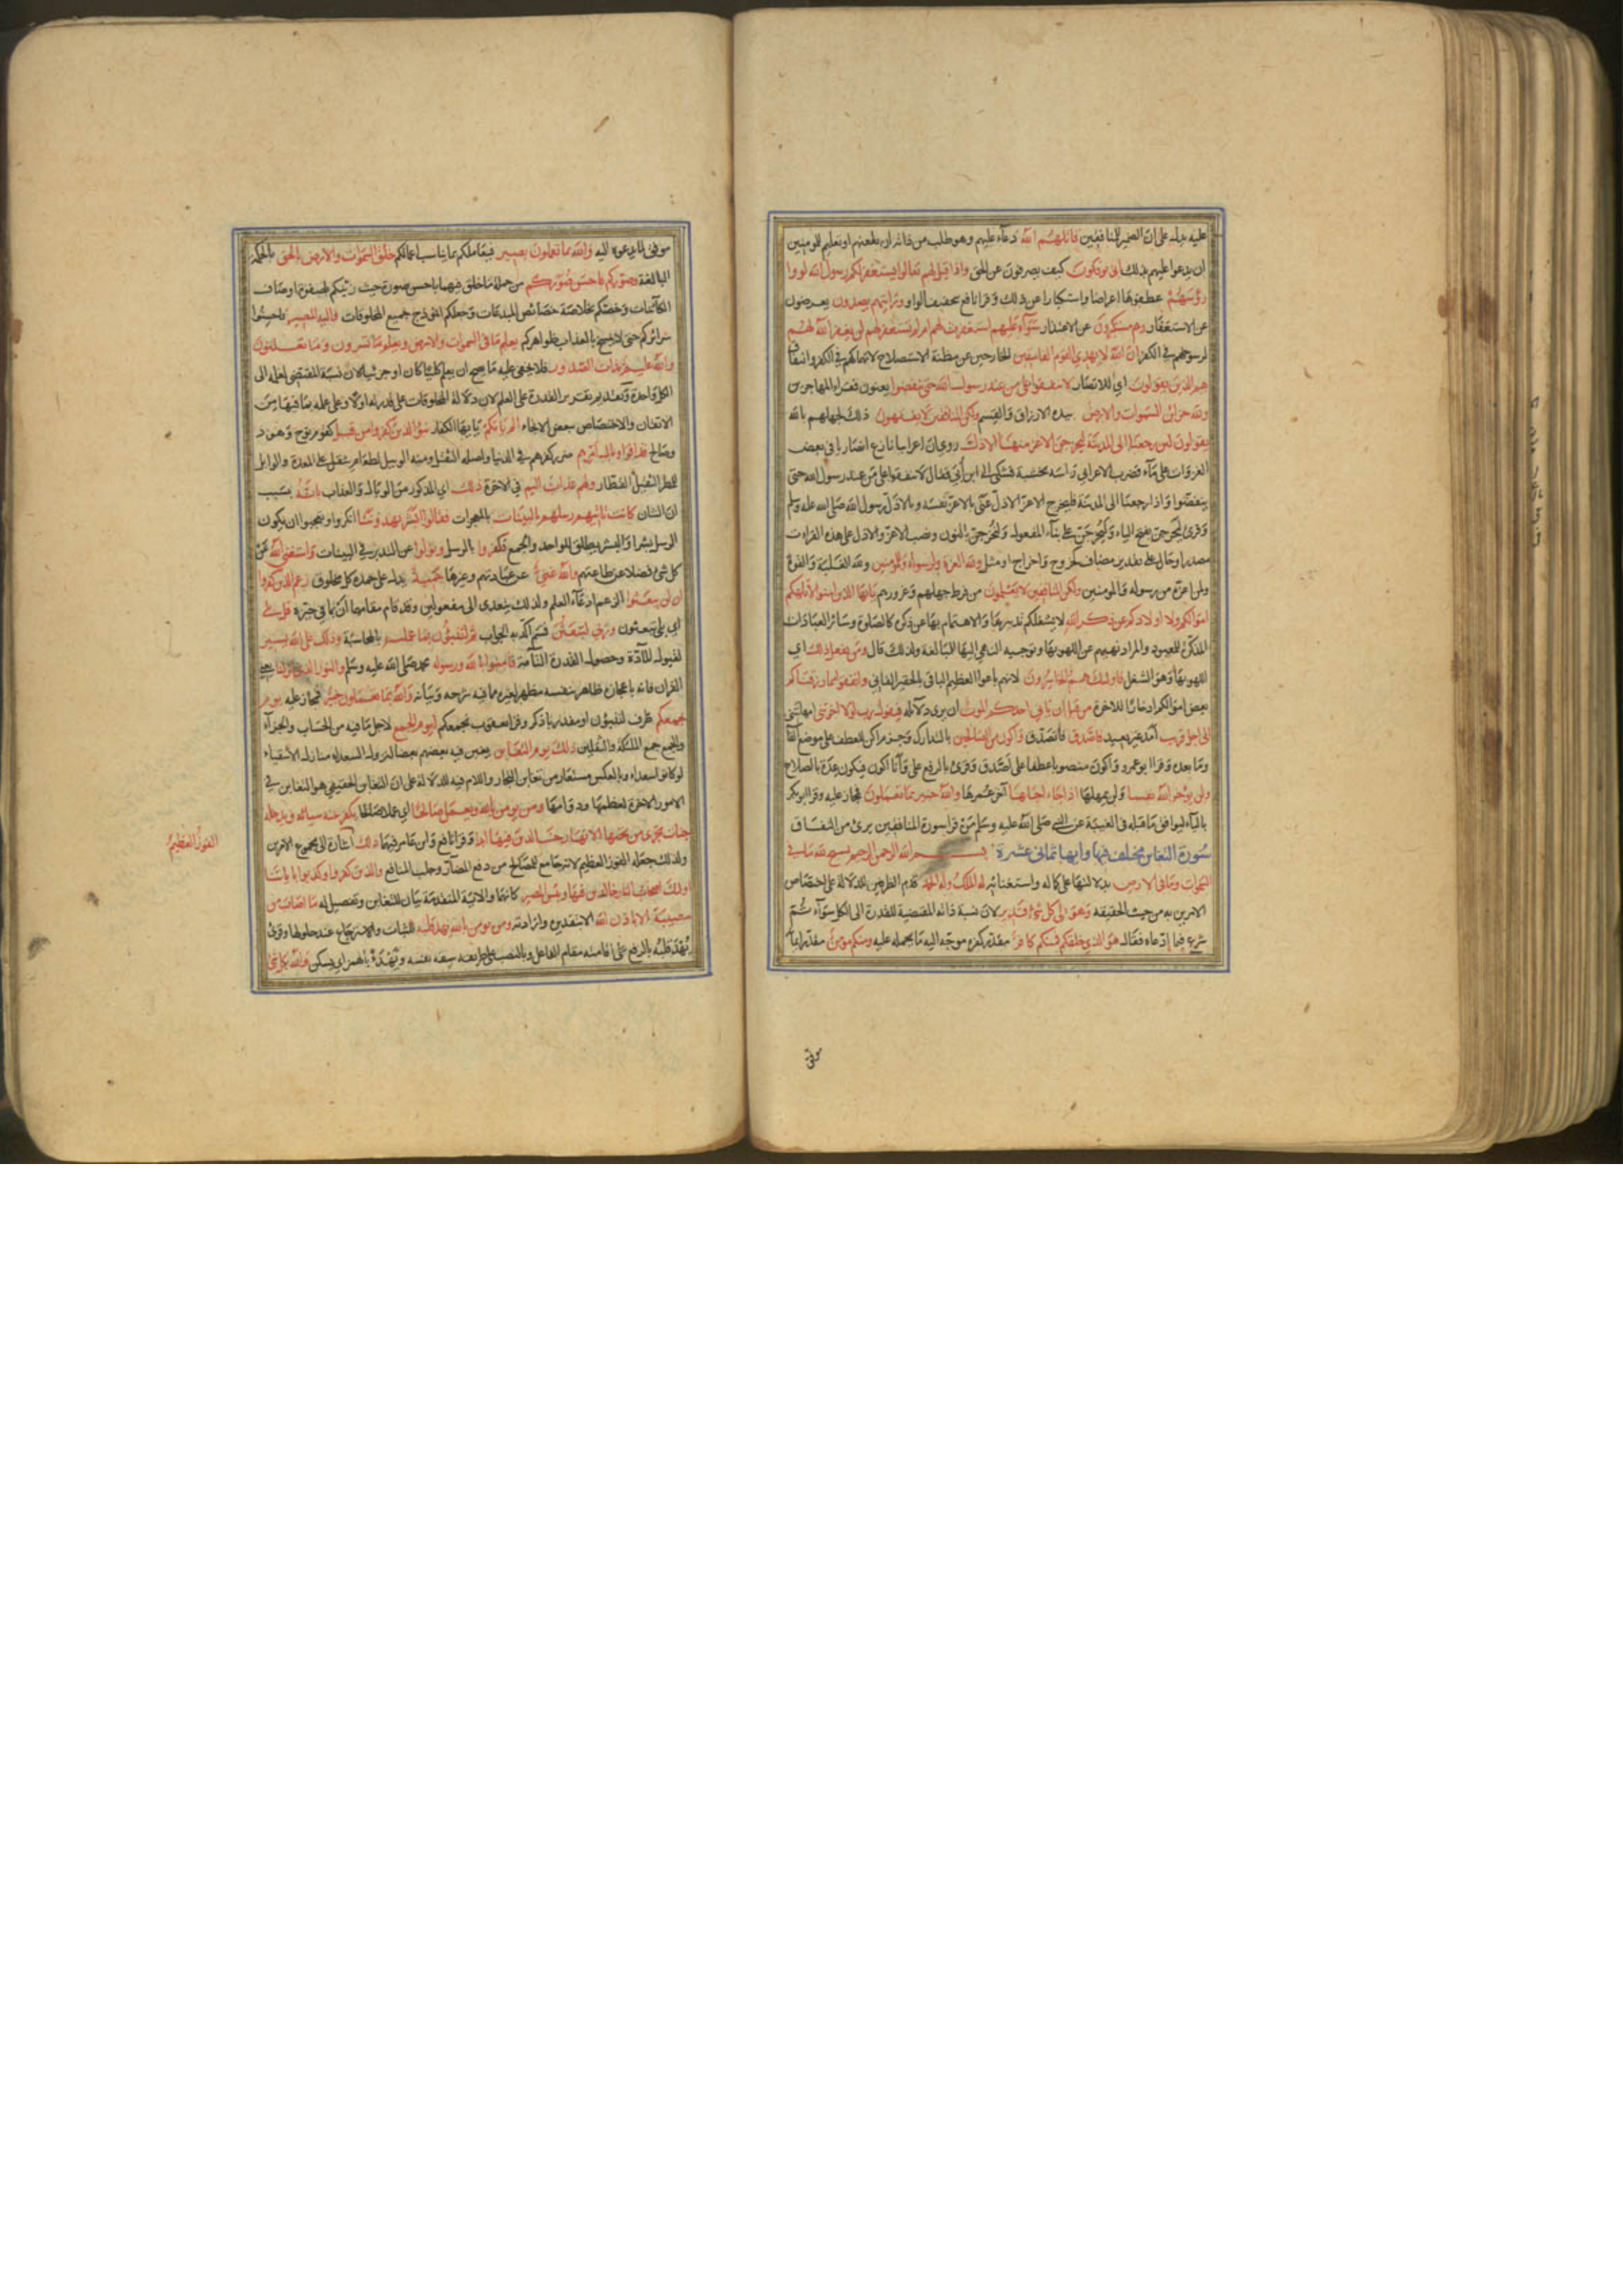 عليه يدل على ان الضمير للمنافقين قاتلهم الله دعاء عليهم وهو طلب من ذاته ان يلعنهم او تعليم للمومنين
ان يدعوا عليهم بذلك انى يوفكون كيف يصرفون عن الحق واذا قيل لهم تعالوا يستغفر لكم رسول الله لووا
رؤسهم عطفوها اعراضا واستكبارا عن ذلك وقرا نافع بتخفيف الواو ورايتهم يصدون يعرضون
عن الاستغفار وهم مستكبرون عن الاعتذار سواء عليهم استغفرت لهم ام لم تستغفر لهم لن يغفر الله لهم
لرسوخهم في الكفر ان الله لا يهدي القوم الفاسقين الخارجين عن مظنة الاستصلاح لانهماكهم في الكفر والنفاق
هم الذين يقولون اي للانصار لا تنفقوا على من عند رسول الله حتى ينفضوا يعنون فقراء المهاجرين
ولله خزائن السموات والارض بيده الارزاق والقسم ولكن المنافقين لا يفقهون ذلك لجهلهم بالله
يقولون لئن رجعنا الى المدينة ليخرجن الاعز منها الاذل روي ان اعرابيا نازع انصاريا في بعض
الغزوات على ماء فضرب الاعرابي راسه بخشبة فشكى الى ابن أبي فقال لا تنفقوا على من عند رسول الله حتى
ينفضوا واذا رجعنا الى المدينة فليخرج الاعز الاذل عنى بالاعز نفسه وبالاذل رسول الله صلى الله عليه وسلم
وقرئ ليخرجن بفتح الياء وليخرجن على بناء المفعول ولنخرجن بالنون ونصب الاعز والاذل على هذه القراءت
مصدر او حال على تقدير مضاف كخروج واخراج او مثل ولله العزة ولرسوله وللمومنين ولله الغلبة والقوة
ولمن اعزه من رسوله والمومنين ولكن المنافقين لا يعلمون من فرط جهلهم وغرورهم يايها الذين امنوا لا تلهكم
اموالكم ولا اولادكم عن ذكر الله لا يشغلكم تدبيرها والاهتمام بها عن ذكره كالصلوة وسائر العبادات
المذكرة للمعبود والمراد نهيهم عن اللهو بها وتوجيه النهي اليها للمبالغة ولذلك قال ومن يفعل ذلك اي
اللهو بها وهو الشغل فاولئك هم الخاسرون لانهم باعوا العظيم الباقي بالحقير الفاني وانفقوا مما رزقناكم
بعض اموالكم ادخارا للاخرة من قبل ان ياتي احدكم الموت ان يرى دلائله فيقول رب لولا اخرتني امهلتني
الى اجل قريب امد غير بعيد فاصدق فاتصدق واكون من الصالحين بالتدارك وجزم اكن للعطف على موضع الفا
وما بعده وقرا ابو عمرو واكون منصوبا عطفا على اصدق وقرئ بالرفع على وانا اكون فيكون عدة بالصلاح
ولن يؤخر الله نفسا ولن يمهلها اذا جاء اجلها آخر عمرها والله خبير بما تعملون فمجاز عليه وقرا ابو بكر
بالياء ليوافق ما قبله في الغيبة عن النبي صلى الله عليه وسلم من قرا سورة المنافقين برئ من النفاق
سورة التغابن مختلف فيها وايها ثماني عشرة بسم الله الرحمن الرحيم يسبح لله ما في
السموات وما في الارض بدلالتها على كماله واستغنائه له الملك وله الحمد قدم الظرفين للدلالة على اختصاص
الامرين به من حيث الحقيقة وهو على كل شئ قدير لان نسبة ذاته المقتضية للقدرة الى الكل سواء ثم
شرع فيما ادعاه فقال هو الذي خلقكم فمنكم كافر مقدر كفره موجه اليه ما يحمله عليه ومنكم مومن مقدر ايمانه
موفق
موفق لما يدعوه اليه والله بما تعملون بصير فيعاملكم بما يناسب اعمالكم خلق السموات والارض بالحق بالحكمة
البالغة وصوركم فاحسن صوركم من جملة ما خلق فيهما باحسن صورة حيث زينكم بصفوة اوصاف
الكائنات وخصكم بخلاصة خصائص المبدعات وجعلكم انموذج جميع المخلوقات واليه المصير فاحسنوا
سرائركم حتى لا يمسخ بالعذاب ظواهركم يعلم ما في السموات والارض ويعلم ما تسرون وما تعلنون
والله عليم بذات الصدور فلا يخفى عليه ما يصح ان يعلم كليا كان او جزئيا لان نسبة المقتضي لعلمه الى
الكل واحدة وتقديم تقرير القدرة على العلم لان دلالة المخلوقات على قدرته اولا وعلى علمه بما فيها من
الاتقان والاختصاص ببعض الانحاء الم ياتكم يا ايها الكفار نبؤ الذين كفروا من قبل كقوم نوح وهود
وصالح فذاقوا وبال امرهم ضرر كفرهم في الدنيا واصله الثقل ومنه الوبيل لطعام يثقل على المعدة والوابل
للمطر الثقيل القطار ولهم عذاب اليم في الاخرة ذلك اي المذكور من الوبال والعذاب بانه بسبب
ان الشان كانت تاتيهم رسلهم بالبينات بالمعجزات فقالوا ابشر يهدوننا انكروا وتعجبوا ان يكون
الرسل بشرا والبشر يطلق للواحد والجمع فكفروا بالرسل وتولوا عن التدبر في البينات واستغنى الله عن
كل شئ فضلا عن طاعتهم والله غني عن عبادتهم وغيرها حميد يدل على حمده كل مخلوق زعم الذين كفروا
ان لن يبعثوا الزعم ادعاء العلم ولذلك يتعدى الى مفعولين وقد قام مقامهما ان بما في حيزه قل بلى
اي بلى تبعثون وربي لتبعثن قسم اكد به الجواب ثم لتنبؤن بما عملتم بالمحاسبة وذلك على الله يسير
لقبول المادة وحصول القدرة التامة فامنوا بالله ورسوله محمد صلى الله عليه وسلم والنور الذي انزلنا يعني
القران فانه باعجازه ظاهر بنفسه مظهر لغيره مما فيه شرحه وبيانه والله بما تعملون خبير فمجاز عليه يوم
يجمعكم ظرف لتنبؤن او مقدر باذكر وقرا يعقوب نجمعكم ليوم الجمع لاجل ما فيه من الحساب والجزاء
والجمع جمع الملئكة والثقلين ذلك يوم التغابن يغبن فيه بعضهم بعضا لنزول السعداء منازل الاشقياء
لو كانوا سعداء وبالعكس مستعار من تغابن التجار واللام فيه للدلالة على ان التغابن الحقيقي هو التغابن في
الامور الاخرة لعظمها ودوامها ومن يومن بالله ويعمل صالحا اي عملا صالحا يكفر عنه سيئاته ويدخله
جنات تجري من تحتها الانهار خالدين فيها ابدا وقرا نافع وابن عامر فيهما ذلك اشارة الى مجموع الامرين
الفوز العظيم
ولذلك جعله الفوز العظيم لانه جامع للمصالح من دفع المضار وجلب المنافع والذين كفروا وكذبوا باياتنا
اولئك اصحاب النار خالدين فيها وبئس المصير كانها والاية المتقدمة بيان للتغابن وتفصيل له ما اصاب من
مصيبة الا باذن الله الا بتقديره وارادته ومن يومن بالله يهد قلبه للثبات والاسترجاع عند حلولها وقرئ
يهد قلبه بالرفع على اقامته مقام الفاعل وبالنصب على طريقه سفه نفسه ويهدأ بالهمز اي يسكن والله بكل شئ